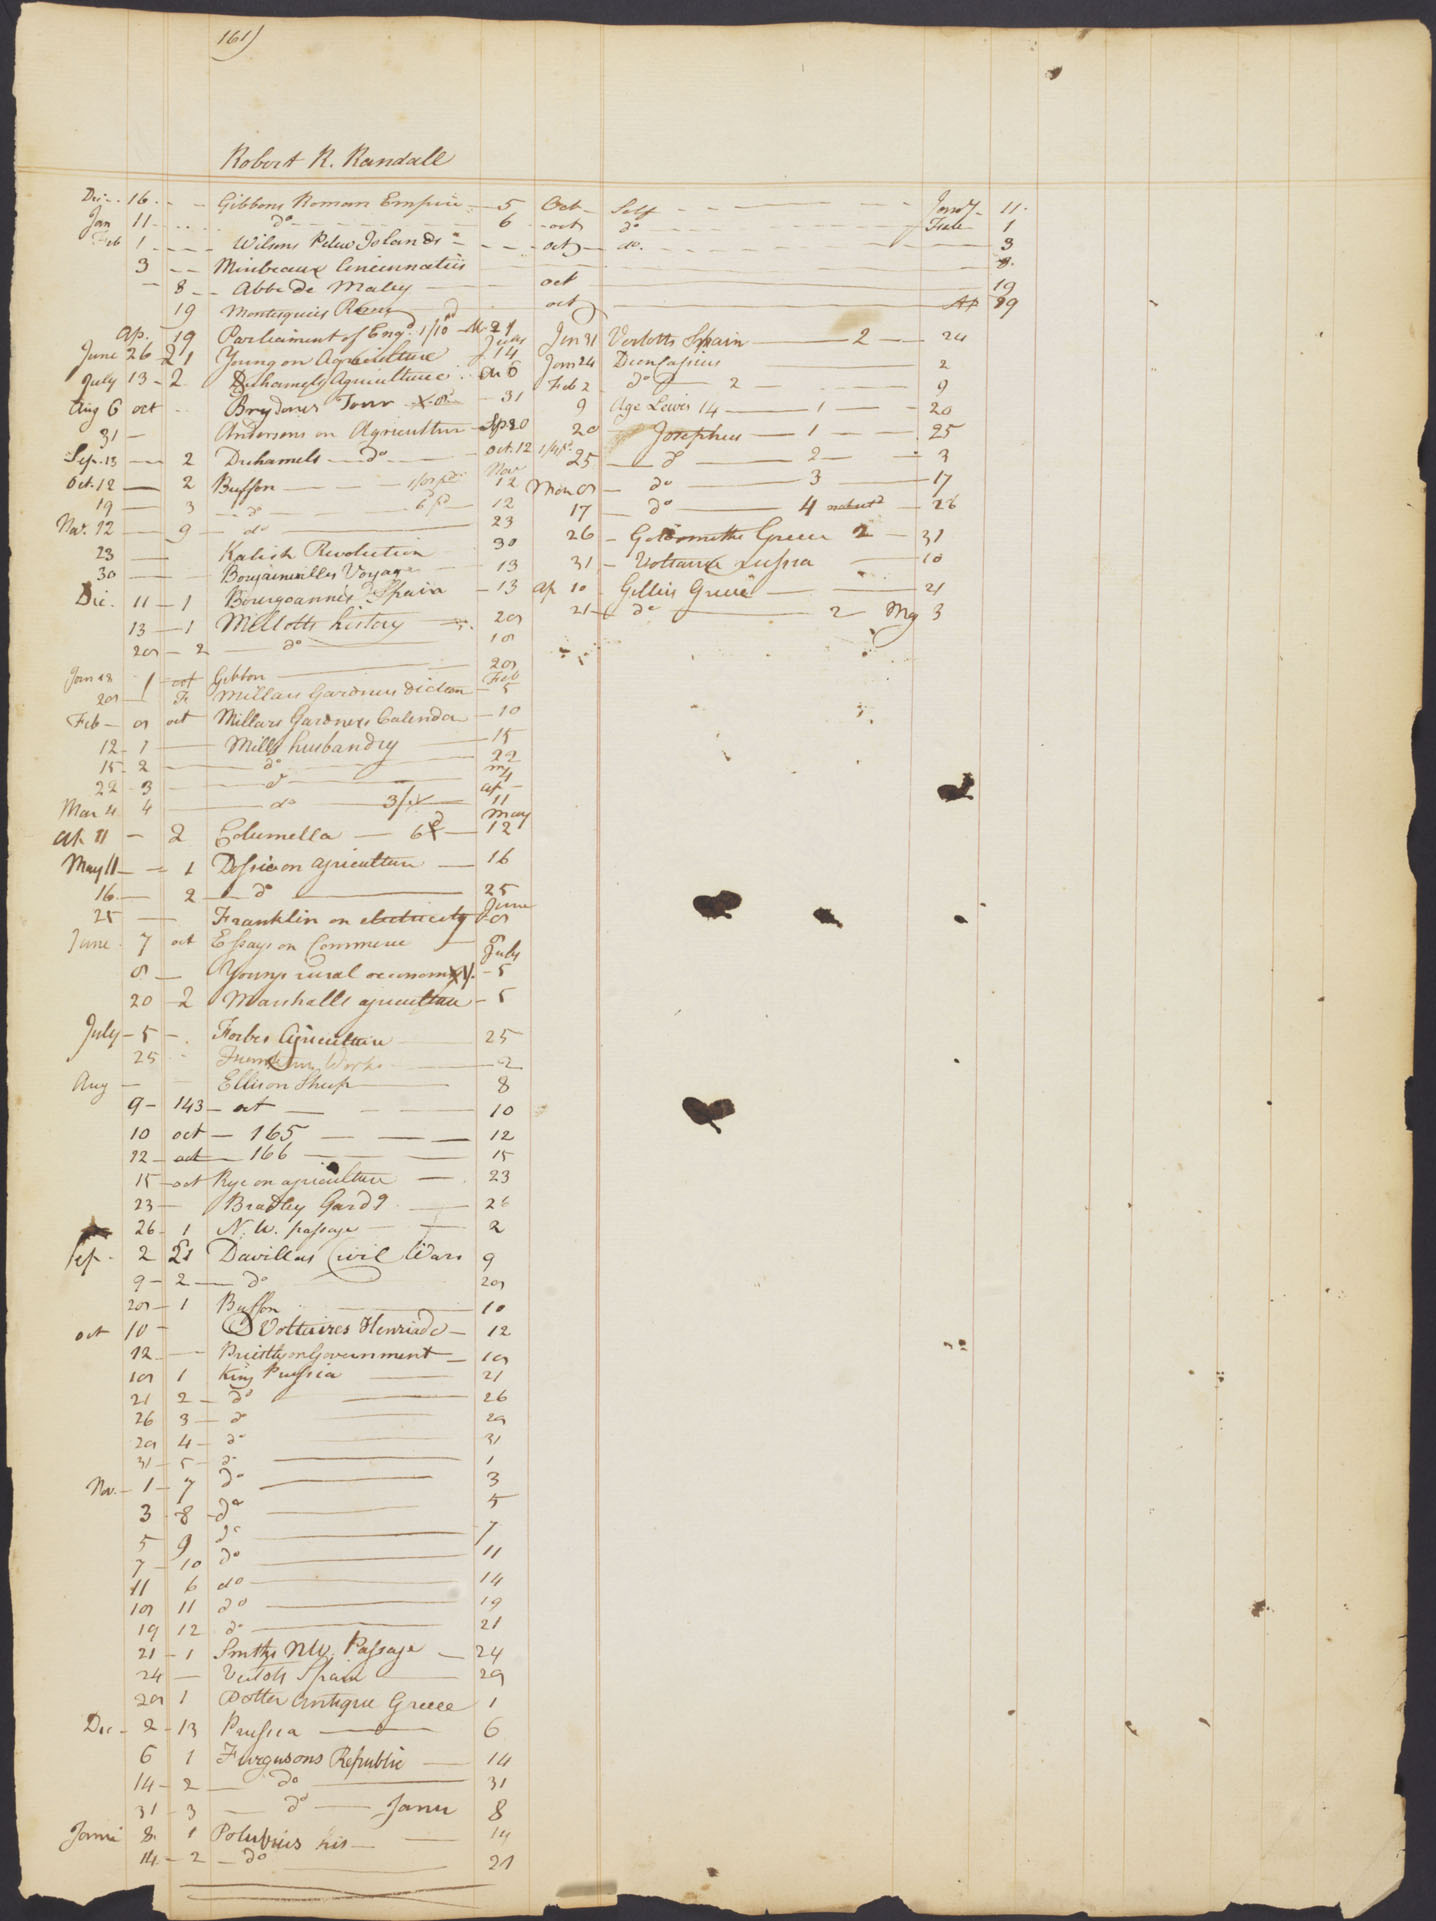 161)
Robert R. Randall
Dec. 16 Gibbons Roman Empire 5
Jan 11 do 6
Feb 1 Wilsons Pelew Islands
3 Mirbeaux Cincinnatus
8 Abbe de Mabley
19 Montesquieu
Ap. 19 Parliament of Engd. 1/10
June 26 21 Young on Agriculture 14
July 13 2 Duhamels Agriculture 6
Aug 6 oct Brydones Tour 31
31 Andersons on Agriculture Sp 20
Sep. 13 2 Duhamels do oct. 12
Oct. 12 2 Buffon Nov 12
19 3 do 12
Nov. 12 9 do 23
23 Kalish Revolution 30
30 Bougainvilles Voyage 13
Dec. 11 1 Bourgoannes Spain 13
13 1 Mellotts history 20
20 2 do 18
Jan 18 1 oct Gibbon 20
20 Fo Millars Gardners Diction Feb 5
Feb 8 oct Millars Gardners Calendar 10
12 1 Mills husbandry 15
15 2 do 22
22 3 do 4
Mar 4 4 do 3/ ap 11
Ap 11 2 Columella 6d May 12
May 11 1 on agriculture 16
16 2 do 25
25 Franklin on electricity June 8
June 7 oct Essays on Commerce
8 Youngs rural oeconomy July 5
20 2 Marshalls agriculture 5
July 5 Forbes Agriculture 25
25 Works 2
Aug Ellis on Sheep 8
9 143 oct 10
10 oct 165 12
12 oct 166 15
15 oct Rye on agriculture 23
23 Bradley Gardg 26
26 1 N. W. passage 2
Sep. 2 21 Davillas Civil Wars 9
9 2 do 20
20 1 Buffon 10
oct 10 Voltaires Henriade 12
12 Priestly on Government 18
18 1 King Prussia 21
21 2 do 26
26 3 do 29
29 4 do 31
31 5 do 1
Nov. 1 7 do 3
3 8 do 5
5 9 do 7
7 10 do 11
11 6 do 14
18 11 do 19
19 12 do 21
21 1 Smiths NW. Passage 24
24 Vertots Spain 29
29 1 Potter Antique Greece 1
Dec 2 13 Prussia 6
6 1 Furgusons Republic 14
14 2 do 31
31 3 do Janu 8
Janu 8 1 Polubius his 14
14 2 do 21
Oct Self Janry 11
oct do Feb 1
oct do. 3
8
oct 19
oct Ap 19
Jan 31 Vertotts Spain 2 24
Jan 24 Dion Cassius 2
Feb 2 do 2 9
9 Age Lewis 14 1 20
20 Josephus 1 25
25 do 2 3
Mar 8 do 3 17
17 do 4 26
26 Goldsmiths Greece 2 31
31 Voltaire Russia 10
Ap 10 Gillies Greece 21
21 do 2 My 3